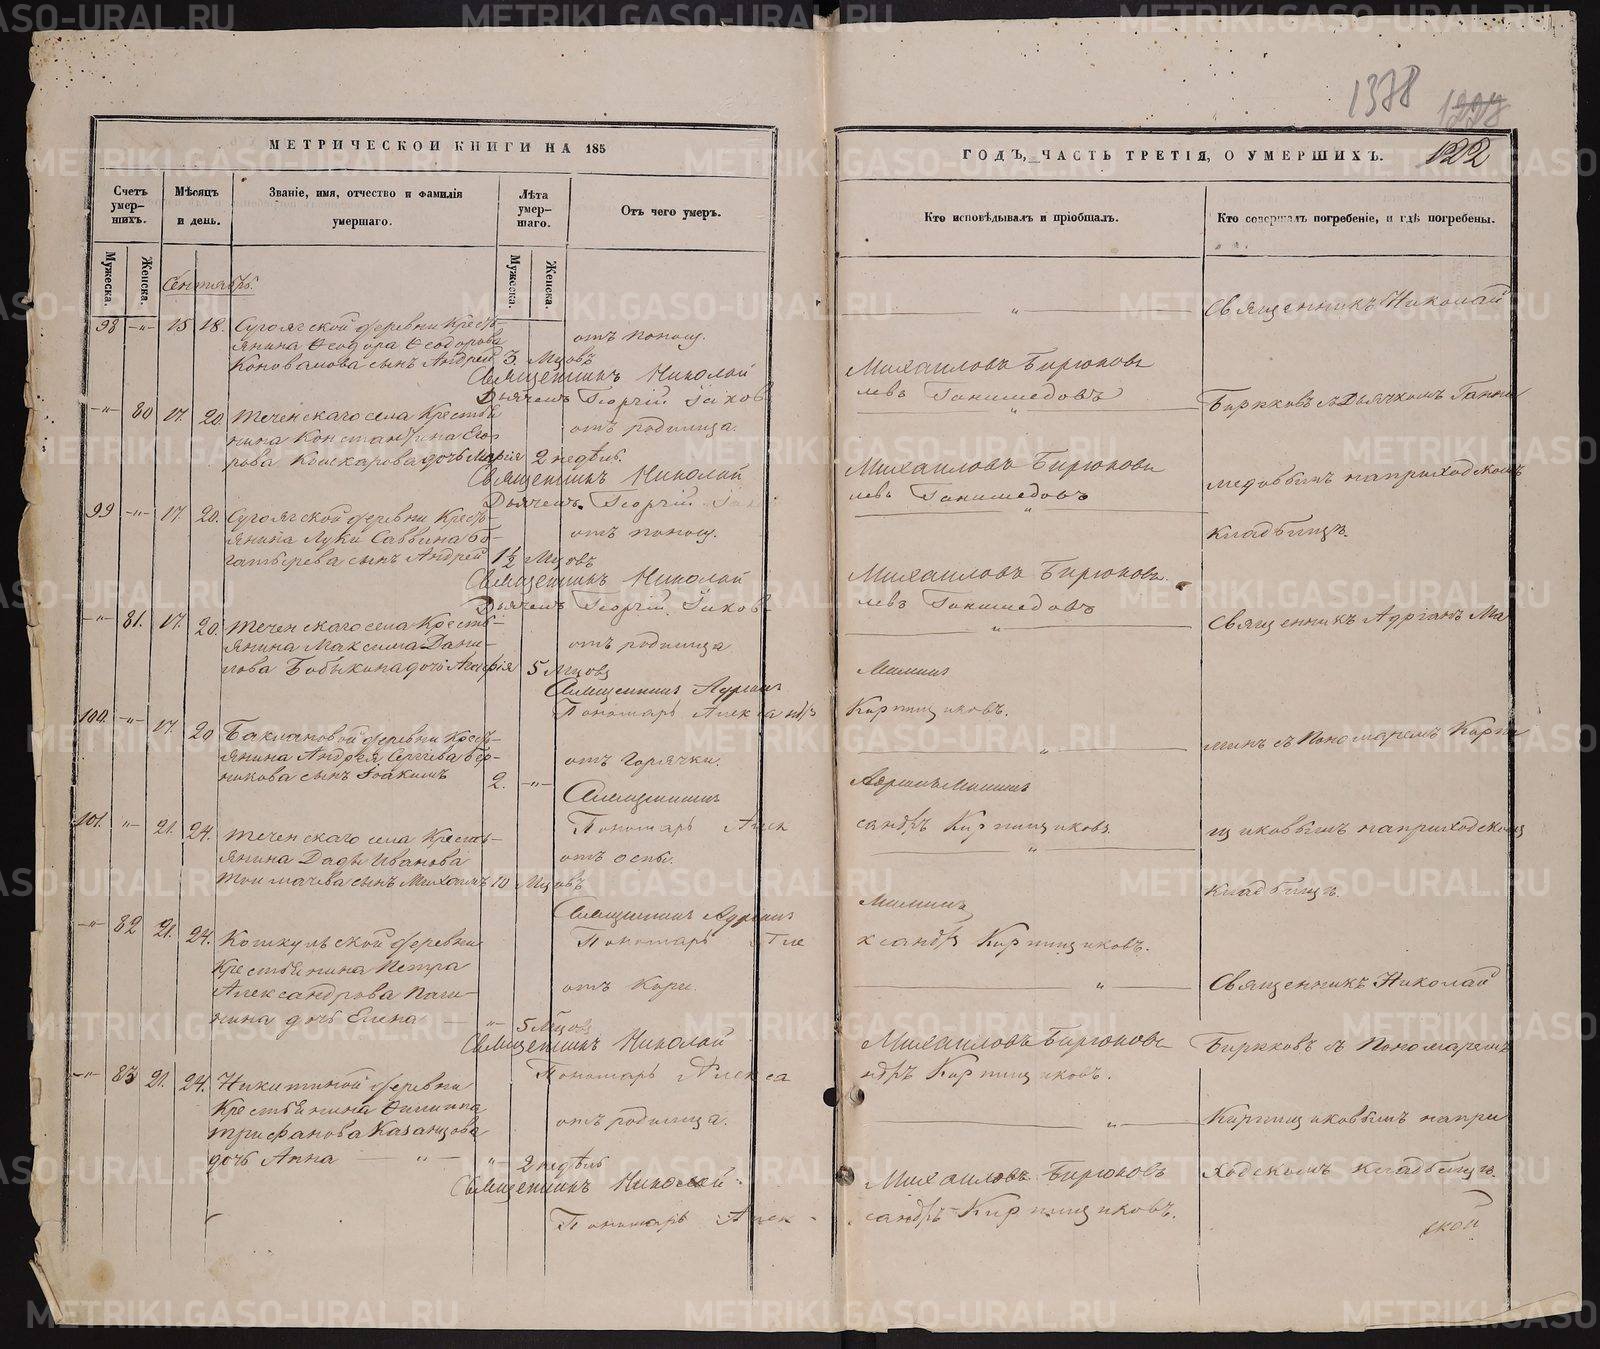 1378
1228
МЕТРИЧЕСКОЙ КНИГИ НА 185
ГОДЪ, ЧАСТЬ ТРЕТІЯ, О УМЕРШИХЪ. 122
Счетъ умер-шихъ.
Мужеска.
Женска.
Мѣсяцъ и день.
Званіе, имя, отчество и фамилія умершаго.
Лѣта умер-шаго.
Мужеска.
Женска.
Отъ чего умеръ.
Кто исповѣдывалъ и пріобщалъ.
Кто совершалъ погребеніе, и гдѣ погребены.
Сентябрь.
98 -"- 15 18. Сугоякской деревни Кресть-
янина Ѳеодора Ѳеодорова отъ поносу.
Коновалова сынъ Андрей 3 Мцовъ
Священникъ Николай Михаиловъ Бирюковъ
Дьячекъ Георгій Іаковлевъ Ганимедовъ
-"- 80 17. 20. Теченскаго села Крестья
нина Константина Его отъ родимца.
рова дочь Марія 2 недѣль.
Священникъ Николай Михаиловъ Бирюковъ
Дьячекъ Георгій Іаковлевъ Ганимедовъ
99 -"- 17. 20. Сугоякской деревни Кресть
янина Луки Саввина Бо- отъ поносу.
гатырева сынъ Андрей 1½ Мцовъ
Священникъ Николай Михаиловъ Бирюковъ
Дьячекъ Георгій Іаковлевъ Ганимедовъ
-"- 81. 17. 20. Теченскаго села Кресть-
янина Максима Дани- отъ родимца
лова Бобыкина дочь 5 Мцовъ
Священникъ Адріанъ Мининъ
Пономарь Александръ Кирпищиковъ.
100. -"- 17. 20 Баклановой деревни Крест-
янина Андрея Сергіева отъ горячки.
сынъ Іоакимъ 2. -"-
Священникъ Адріанъ Мининъ
Пономарь Александръ Кирпищиковъ
101. -"- 21. 24. Теченскаго села Кресть-
янина Иванова отъ оспы.
Толмачева сынъ Михаилъ 10 Мцовъ
Священникъ Адріанъ Мининъ
Пономарь Александръ Кирпищиковъ.
-"- 82 21. 24. Кошкульской деревни
Крестьянина Петра
Александрова Паш- отъ Кори.
нина дочь Елена -"- 5 Мцовъ
Священникъ Николай Михаиловъ Бирюковъ
Пономарь Александръ Кирпищиковъ.
-"- 83 21. 24. Никитиной деревни
Крестьянина Филиппа отъ родимца.
Трифанова Казанцова
дочь Анна -"- 2 недѣль
Священникъ Николай Михаиловъ Бирюковъ
Пономарь Александръ Кирпищиковъ.
Священникъ Николай
Бирюковъ съ Дьячкомъ Гани
медовымъ на приходскомъ
кладбищѣ.
Священникъ Адріанъ Ми
нинъ съ Пономаремъ Кирпи
щиковымъ на приходскомъ
кладбищѣ.
Священникъ Николай
Бирюковъ съ Пономаремъ
Кирпищиковымъ на при
ходскомъ кладбищѣ.
ской
METRIKI.GASO-URAL.RU